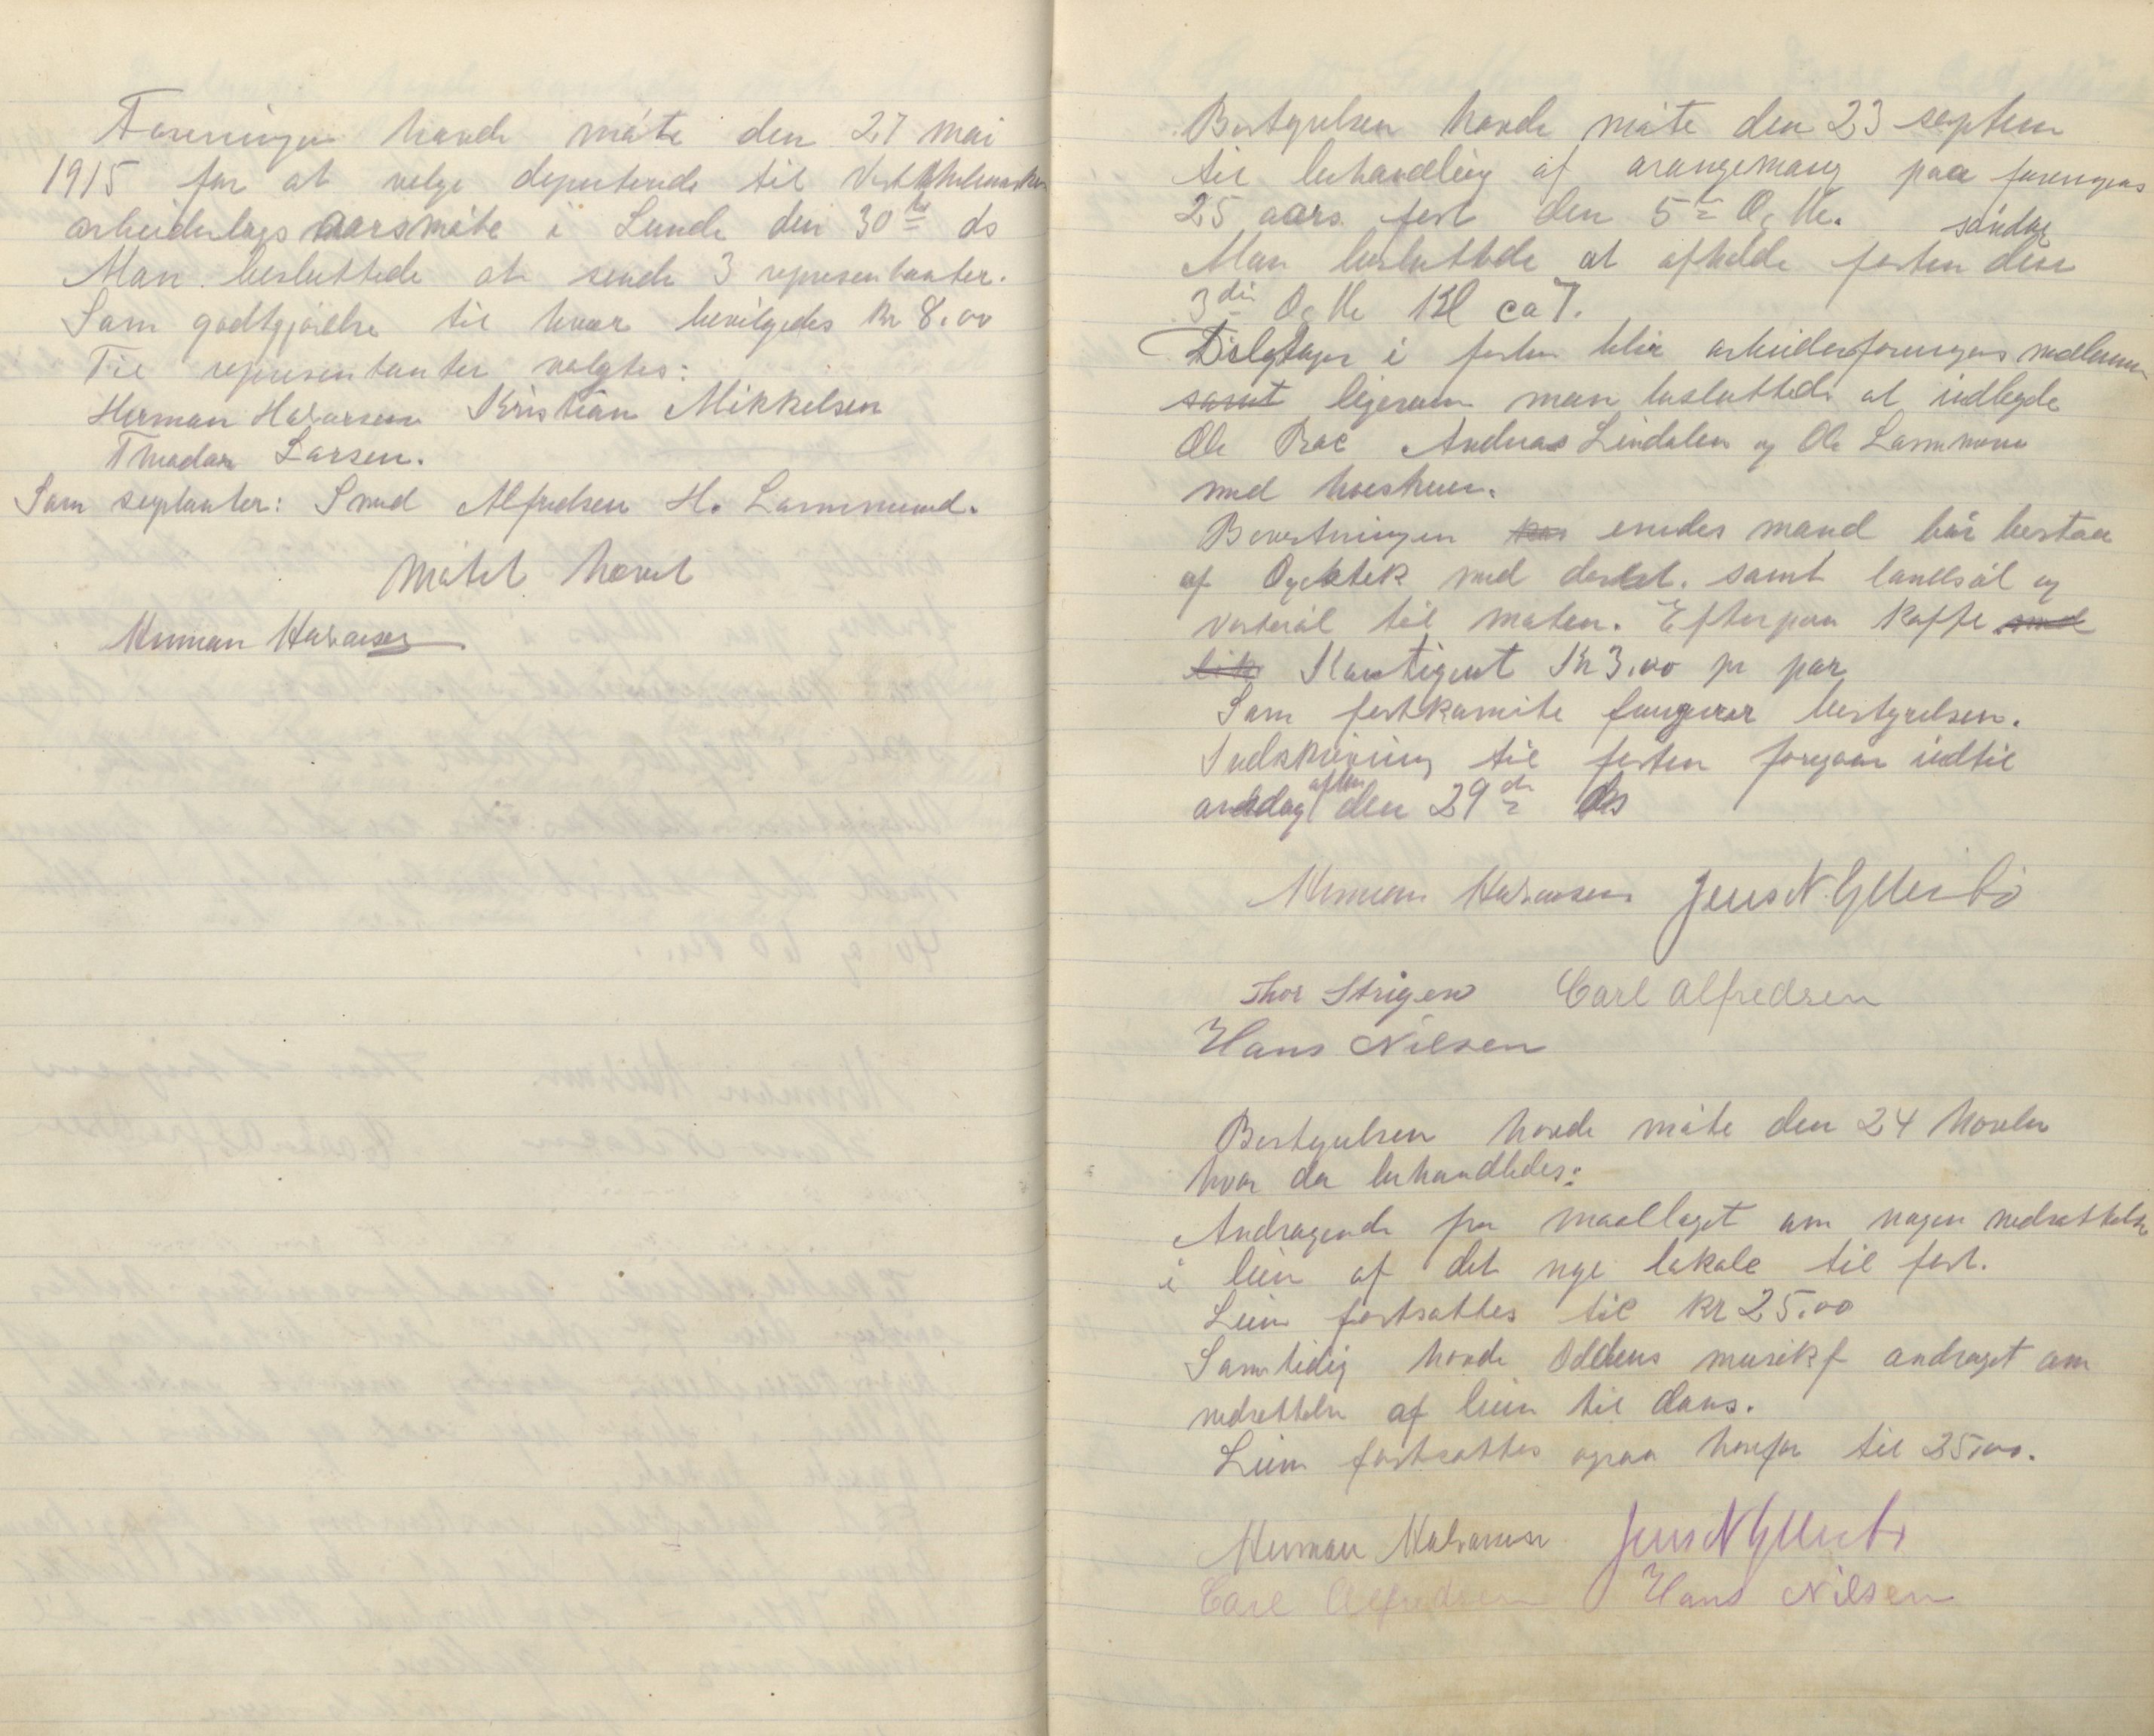 Foreningen havde møte den 27 mai
1915 for at velge deputende til Vesttelemarken
arbeiderlags aarsmøte i Lunde den 30te ds
Man besluttede at sende 3 representanter.
Som godtgjørelse til hver bevilgedes kr 8.00
Til representanter valgtes:
Herman Halvorsen Kristian Mikkelsen
Thodor Larsen.
Som suplanter: Smed Alfredsen H. Lammund.
Møtet hevet
Herman Halvorsen
Bestyrelsen havde møte den 23 septem
til behandling af arangemang paa forengens
25 aars fest den 5te Octbe.
søndag
Man besluttede at afholde festen den
3die Octbe Kl ca 7.
Delgtager i festen blir arbeiderforengens medlemmer
samt ligesom man besluttede at indbyde
Ole Bae Andreas Lindalen og Ole Lammun
med hustruer.
Bevertningen enedes mand bør bestaa
af Oxestek med desert. samt landsøl og
vørterøl til maten. Efterpaa kaffe med
lik Kontigent Kr 3.00 pr par
Som festkomite fungerer bestyrelsen.
Indskrivning til festen foregaar indtil
onsdag aften den 29de ds
Herman Halvorsen Jens N. Gllerbø
Thor Strigen Carl Alfredsen
Hans Nilsen
Bestyrelsen havde møte den 24 Novbr
hvor da behandledes:
Andragende fra maallaget om nogen nedsættelse
i leien af det nye lokale til fest.
Leien fastsattes til kr 25.00
Samtidig havde Oddens musikf andraget om
nedsættelse af leien til dans.
Leien fastsattes ogsaa herfor til 25.00.
Herman Halvorsen Jens N Gllerbø
Carl Alfredsen Hans Nilsen